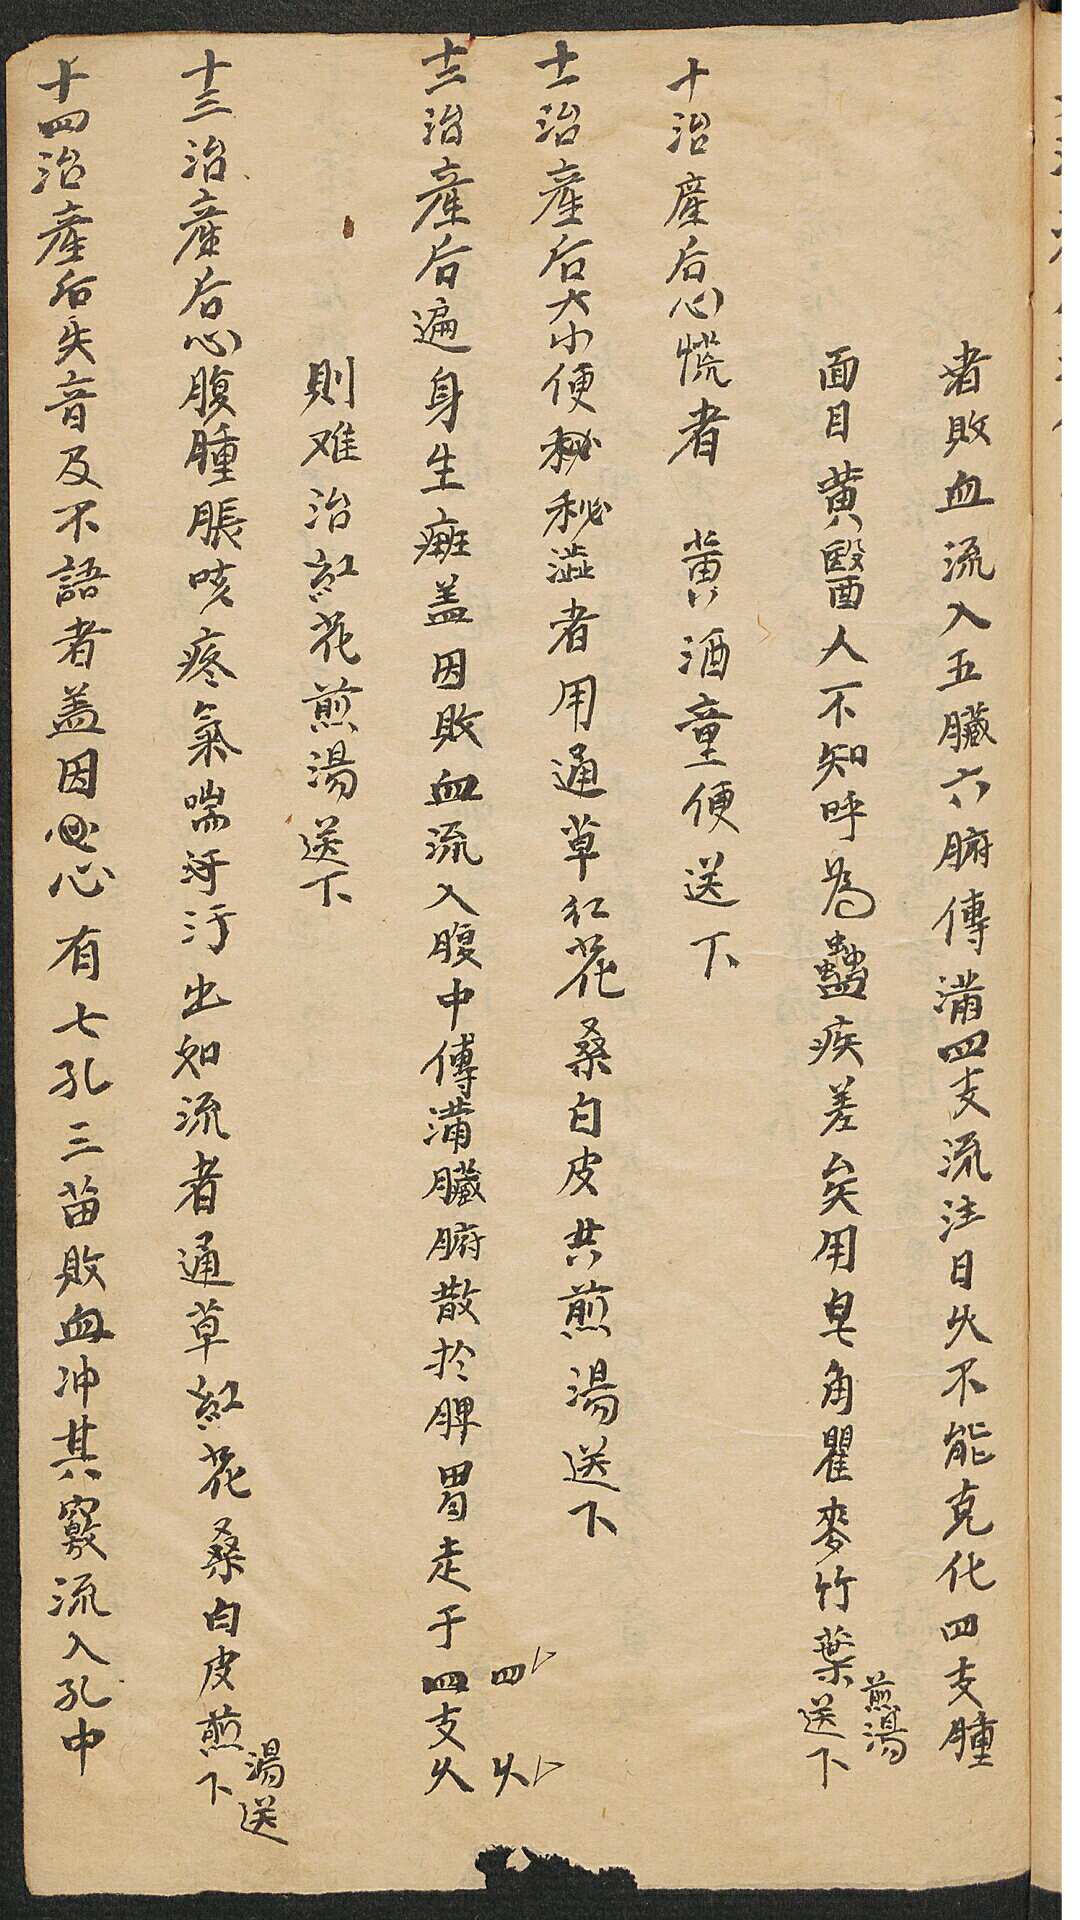 者敗血流入五臟六腑傳滿四支流注日久不能克化四支腫
面目黄醫人不知呼為蠱疾差矣用皂角瞿麥竹葉煎湯送下
十治産后心慌者 黄酒童便送下
十一治産后大小便秘澁者用通草红花桑白皮共煎湯送下
十二治産后遍身生癍盖因敗血流入腹中傳滿臟腑散於脾胃走于四支久
四 久
則难治紅花煎湯送下
十三治産后心腹腫脹咳疼氣喘汙汙出如流者通草紅花桑白皮煎湯送下
十四治産后失音及不語者盖因心有七孔三苗敗血冲其竅流入孔中